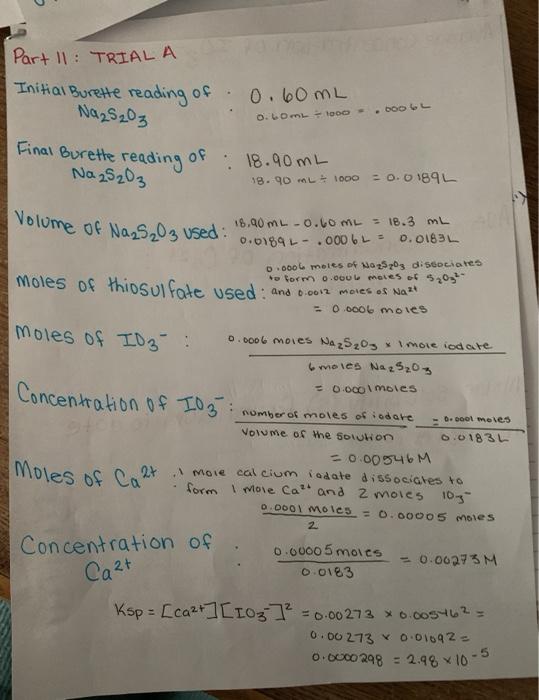 Part 11: TRIAL A
Initial Burette reading of : 0.60mL
Na2S2O3 0.60mL ÷ 1000 = .0006L
Final Burette reading of : 18.90mL
Na2S2O3 18.90 mL ÷ 1000 = 0.0189L
Volume of Na2S2O3 used: 18.90mL - 0.60mL = 18.3 mL
0.0189L - .0006L = 0.0183L
0.0006 moles of Na2S2O3 dissociates
to form 0.0006 moles of S2O3²⁻
moles of thiosulfate used: and 0.0012 moles of Na²⁺
= 0.0006 moles
moles of IO3⁻ : 0.0006 moles Na2S2O3 x 1 mole iodate
6 moles Na2S2O3
= 0.0001moles
Concentration of IO3⁻: number of moles of iodate = 0.0001 moles
Volume of the solution 0.0183L
= 0.00546M
Moles of Ca²⁺ : 1 mole calcium iodate dissociates to
form 1 mole Ca²⁺ and 2 moles IO3⁻
0.0001 moles = 0.00005 moles
2
Concentration of : 0.00005moles = 0.00273M
Ca²⁺ 0.0183
Ksp = [Ca²⁺][IO3⁻]² = 0.00273 x 0.00546² =
0.00273 x 0.01092 =
0.0000298 = 2.98 x 10⁻⁵